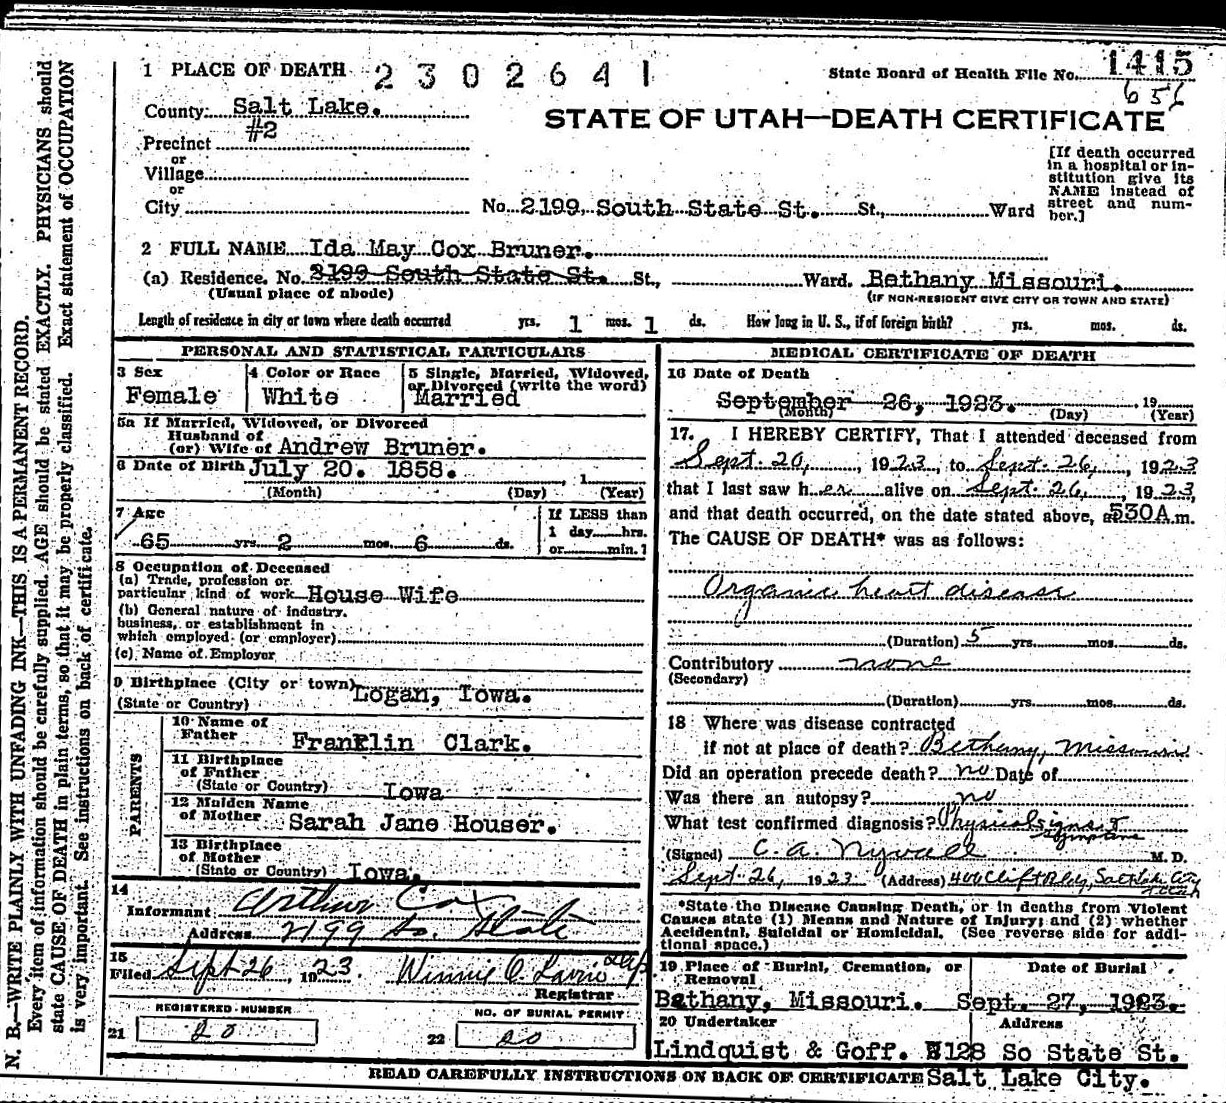 1 PLACE OF DEATH 2302641
State Board of Health File No. 1415
656
County Salt Lake.
STATE OF UTAH—DEATH CERTIFICATE
Precinct #2
or
Village
or
City No. 2199 South State St. St., Ward
[If death occurred
in a hospital or in-
stitution give its
NAME instead of
street and num-
ber.]
2 FULL NAME Ida May Cox Bruner.
(a) Residence. No. 2199 South State St. St., Ward. Bethany Missouri.
(Usual place of abode) (IF NON-RESIDENT GIVE CITY OR TOWN AND STATE)
Length of residence in city or town where death occurred yrs. 1 mos. 1 ds. How long in U. S., if of foreign birth? yrs. mos. ds.
PERSONAL AND STATISTICAL PARTICULARS
3 Sex
Female
4 Color or Race
White
5 Single, Married, Widowed,
or Divorced (write the word)
Married
5a If Married, Widowed, or Divorced
Husband of
(or) Wife of Andrew Bruner.
6 Date of Birth July 20. 1858. , 1
(Month) (Day) (Year)
7 Age
65 yrs. 2 mos. 6 ds.
If LESS than
1 day hrs.
or min. ?
8 Occupation of Deceased
(a) Trade, profession or
particular kind of work House Wife
(b) General nature of industry,
business, or establishment in
which employed (or employer)
(c) Name of Employer
9 Birthplace (City or town) Logan, Iowa.
(State or Country)
PARENTS
10 Name of
Father Franklin Clark.
11 Birthplace
of Father
(State or Country) Iowa
12 Maiden Name
of Mother Sarah Jane Houser.
13 Birthplace
of Mother
(State or Country) Iowa.
14
Informant Arthur Cox
Address 2199 So. State
15
Filed Sept 26, 1923. Winnie O.
Registrar
REGISTERED NUMBER
21 20
NO. OF BURIAL PERMIT
22 20
MEDICAL CERTIFICATE OF DEATH
16 Date of Death
September 26, 1923. , 19
(Month) (Day) (Year)
17. I HEREBY CERTIFY, That I attended deceased from
Sept. 20, , 1923, to Sept. 26, , 1923
that I last saw her alive on Sept. 26, , 1923,
and that death occurred, on the date stated above, at 530A.m.
The CAUSE OF DEATH* was as follows:
Organic heart disease
(Duration) 5 yrs. mos. ds.
Contributory none
(Secondary)
(Duration) yrs. mos. ds.
18 Where was disease contracted
if not at place of death? Bethany, Missouri
Did an operation precede death? no Date of
Was there an autopsy? no
What test confirmed diagnosis? Physical signs &
symptoms
(Signed) C. A. Nyvall M. D.
Sept. 26, 1923 (Address) 400 Clift Bldg, Salt Lake City
Utah
*State the Disease Causing Death, or in deaths from Violent
Causes state (1) Means and Nature of Injury; and (2) whether
Accidental, Suicidal or Homicidal. (See reverse side for addi-
tional space.)
19 Place of Burial, Cremation, or
Removal
Bethany, Missouri.
Date of Burial
Sept. 27, 1923.
20 Undertaker
Lindquist & Goff.
Address
1128 So State St.
Salt Lake City.
READ CAREFULLY INSTRUCTIONS ON BACK OF CERTIFICATE
N. B.—WRITE PLAINLY WITH UNFADING INK—THIS IS A PERMANENT RECORD.
Every item of information should be carefully supplied. AGE should be stated EXACTLY. PHYSICIANS should
state CAUSE OF DEATH in plain terms, so that it may be properly classified. Exact statement of OCCUPATION
is very important. See instructions on back of certificate.